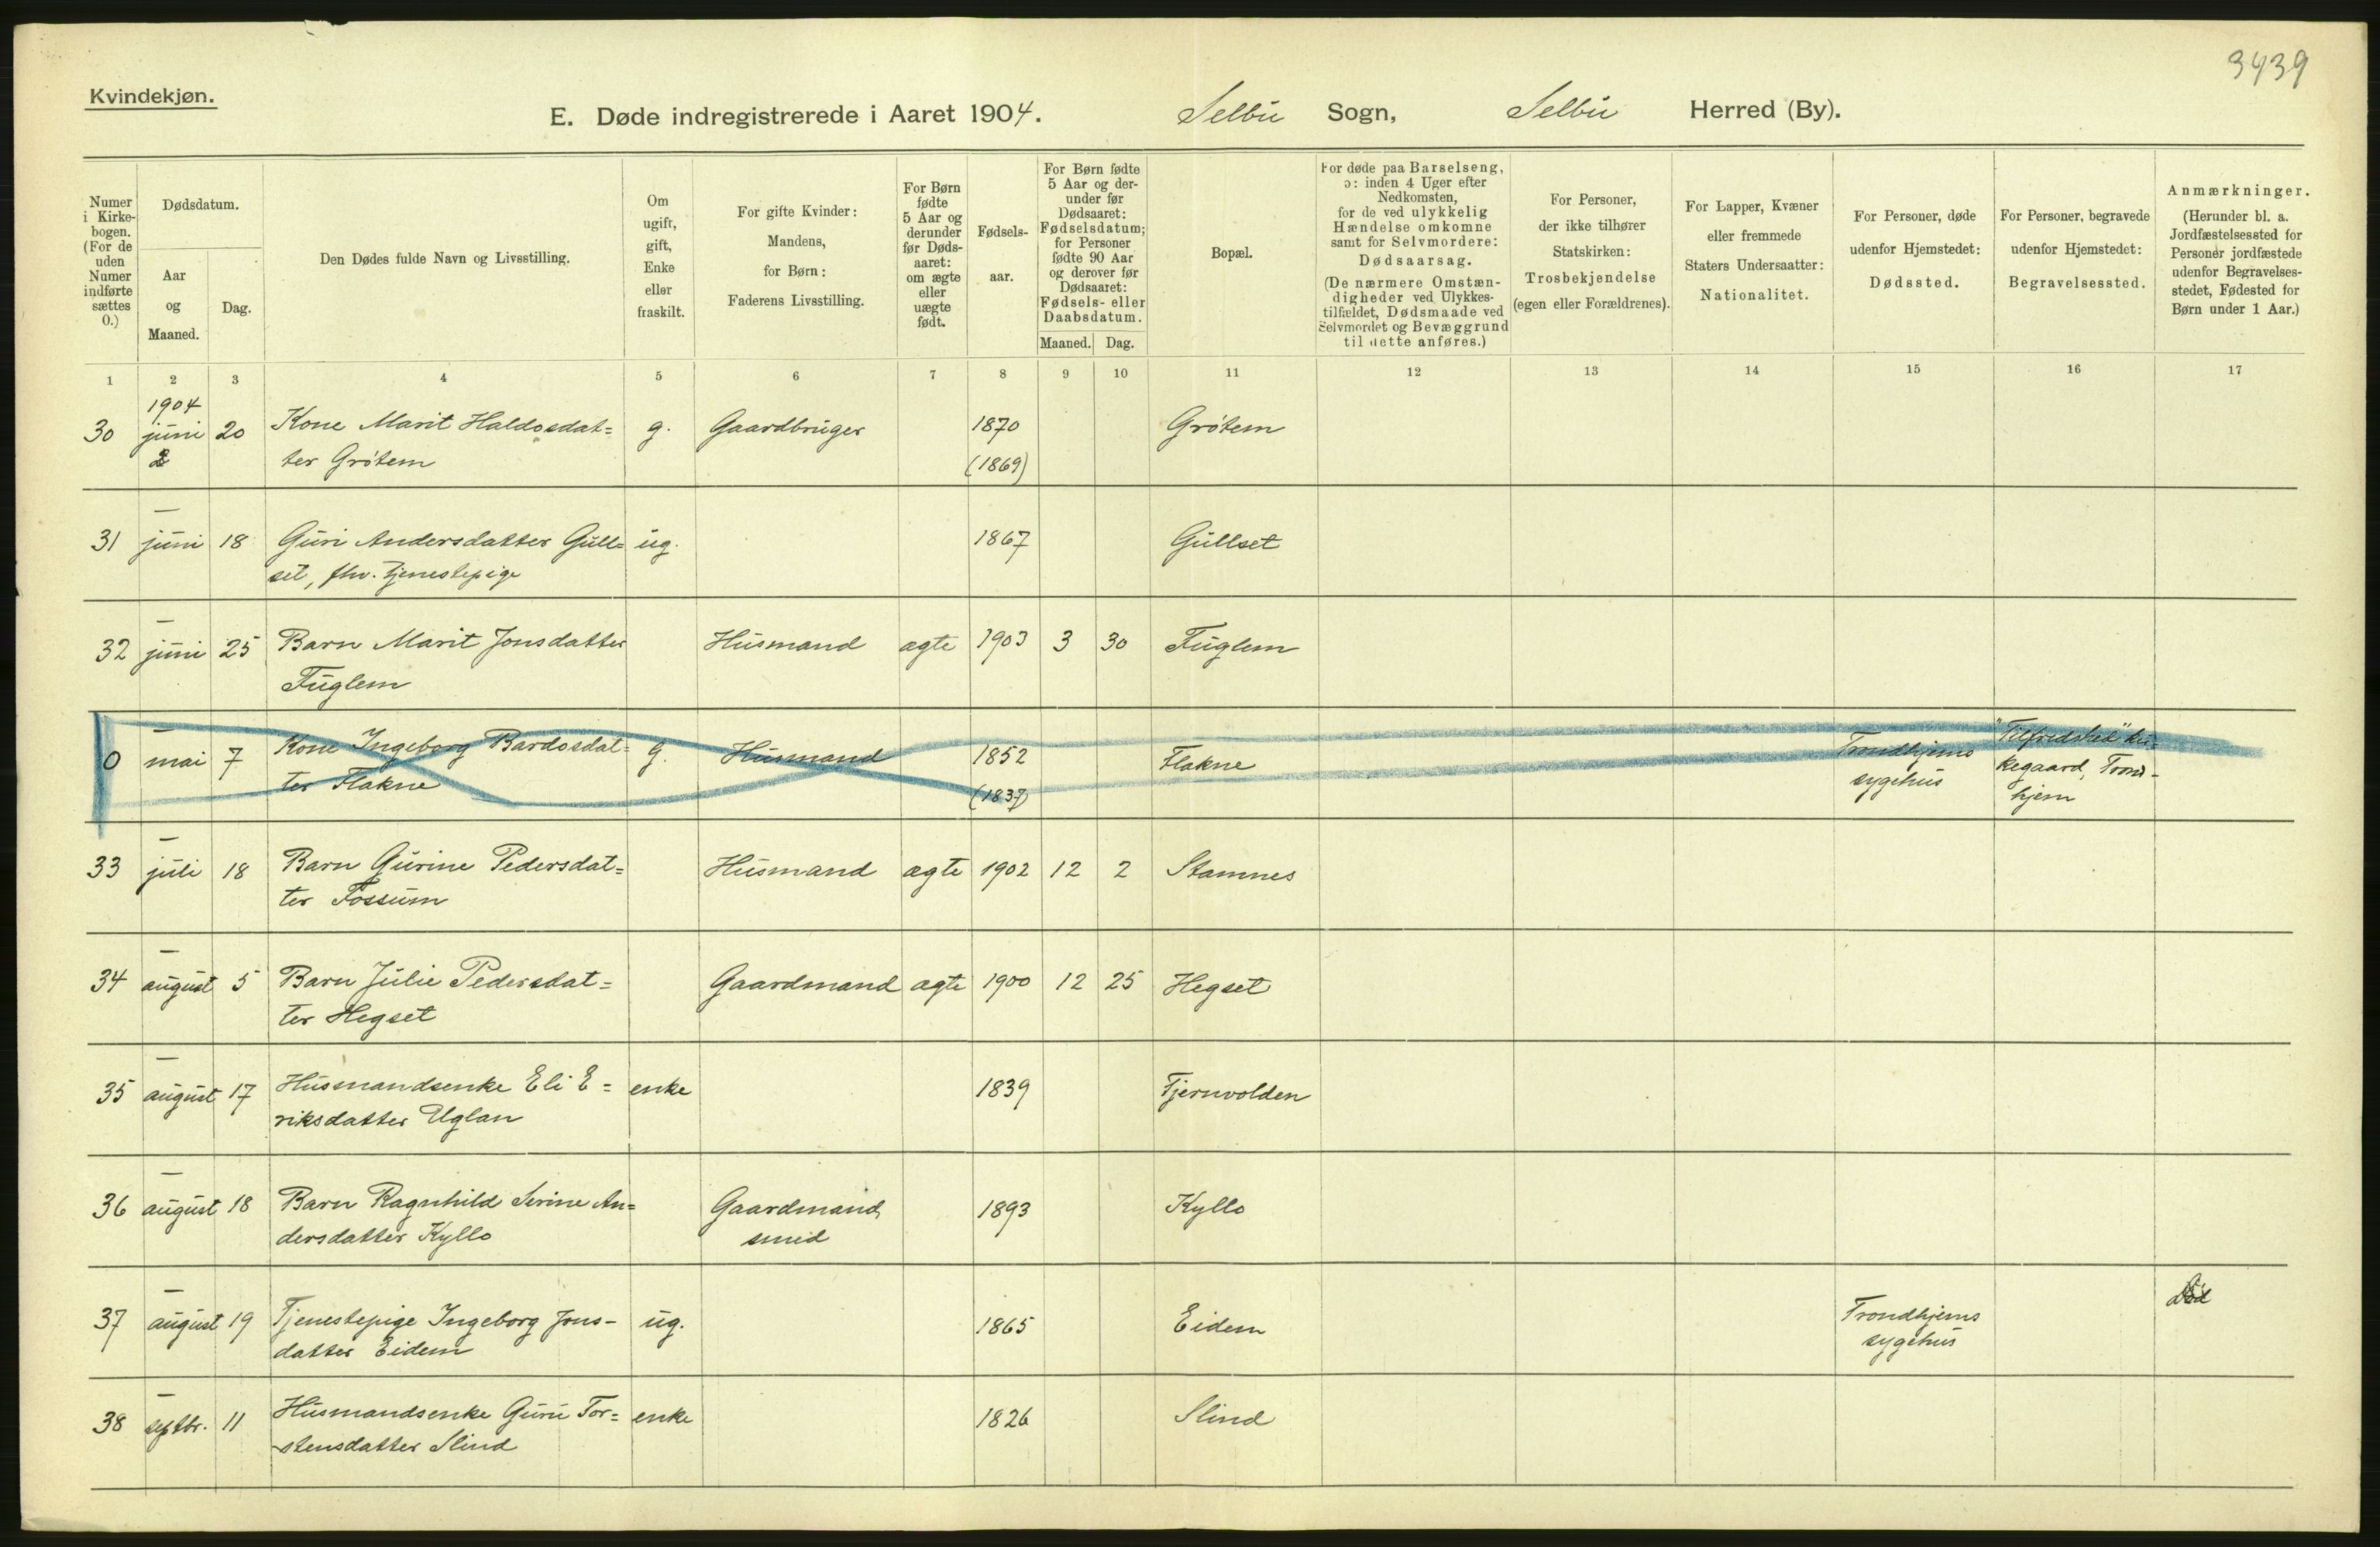 3439
Kvindekjøn.
E. Døde indregistrerede i Aaret 1904. Selbu Sogn, Selbu Herred (By).
Numer i Kirkebogen. (For de uden Numer indførte sættes 0.)
Dødsdatum.
Aar og Maaned.
Dag.
Den Dødes fulde Navn og Livsstilling.
Om ugift, gift, Enke eller fraskilt.
For gifte Kvinder: Mandens, for Børn: Faderens Livsstilling.
For Børn fødte 5 Aar og derunder før Dødsaaret: om ægte eller uægte født.
Fødselsaar.
For Børn fødte 5 Aar og derunder før Dødsaaret: Fødselsdatum; for Personer fødte 90 Aar og derover før Dødsaaret: Fødsels- eller Daabsdatum.
Maaned. Dag.
Bopæl.
For døde paa Barselseng, ɔ: inden 4 Uger efter Nedkomsten, for de ved ulykkelig Hændelse omkomne samt for Selvmordere: Dødsaarsag.
(De nærmere Omstændigheder ved Ulykkestilfældet, Dødsmaade ved Selvmordet og Bevæggrund til dette anføres.)
For Personer, der ikke tilhører Statskirken: Trosbekjendelse (egen eller Forældrenes).
For Lapper, Kvæner eller fremmede Staters Undersaatter: Nationalitet.
For Personer, døde udenfor Hjemstedet: Dødssted.
For Personer, begravede udenfor Hjemstedet: Begravelsessted.
Anmærkninger.
(Herunder bl. a. Jordfæstelsessted for Personer jordfæstede udenfor Begravelsesstedet, Fødested for Børn under 1 Aar.)
1 2 3 4 5 6 7 8 9 10 11 12 13 14 15 16 17
1904
30 juni 20 Kone Marit Haldosdat= g. Gaardbruger 1870 Grötem
2 ter Grötem (1869)
—
31 juni 18 Guri Andersdatter Gull= ug. 1867 Gullset
set, fhv. tjenestepige
—
32 juni 25 Barn Marit Jonsdatter Husmand ægte 1903 3 30 Fuglem
Fuglem
—
0 mai 7 Kone Ingeborg Bardosdat= g. Husmand 1852 Flakne Trondhjems kir=
ter Flakne (1837) sygehus kegaard, Trond-
hjem
—
33 juli 18 Barn Gurine Pedersdat= Husmand ægte 1902 12 2 Stamnes
ter Fossum
—
34 august 5 Barn Julie Pedersdat= Gaardmand ægte 1900 12 25 Hegset
ter Hegset
—
35 august 17 Husmandsenke Eli E= enke 1839 Tjernvolden
riksdatter Uglan
—
36 august 18 Barn Ragnhild Serine An= Gaardmand 1893 Kyllo
dersdatter Kyllo smed
—
37 august 19 Tjenestepige Ingeborg Jons- ug. 1865 Eidem Trondhjems
datter Eidem sygehus
—
38 septbr. 11 Husmandsenke Guru Tor= enke 1826 Slind
stensdatter Slind